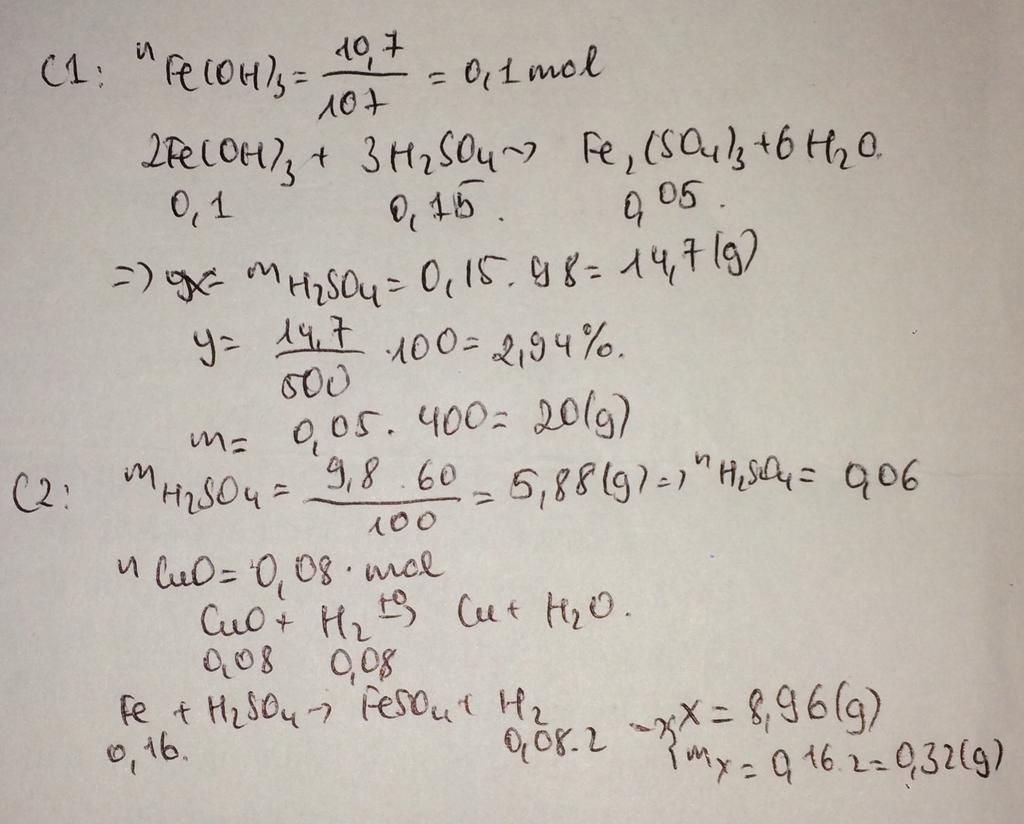 C1: nFe(OH)3 = 10,7 / 107 = 0,1 mol
2Fe(OH)3 + 3H2SO4 → Fe2(SO4)3 + 6H2O.
0,1 0,15. 0,05.
=) mH2SO4 = 0,15. 98 = 14,7(g)
y = 14,7 / 500 .100 = 2,94%.
m = 0,05. 400 = 20(g)
C2: mH2SO4 = 9,8 . 60 / 100 = 5,88(g) =) nH2SO4 = 0,06
nCuO = 0,08. mol
CuO + H2 →(to) Cu + H2O.
0,08 0,08
Fe + H2SO4 → FeSO4 + H2
0,16. 0,08.2
x = 8,96(g)
my = 0,16.2 = 0,32(g)